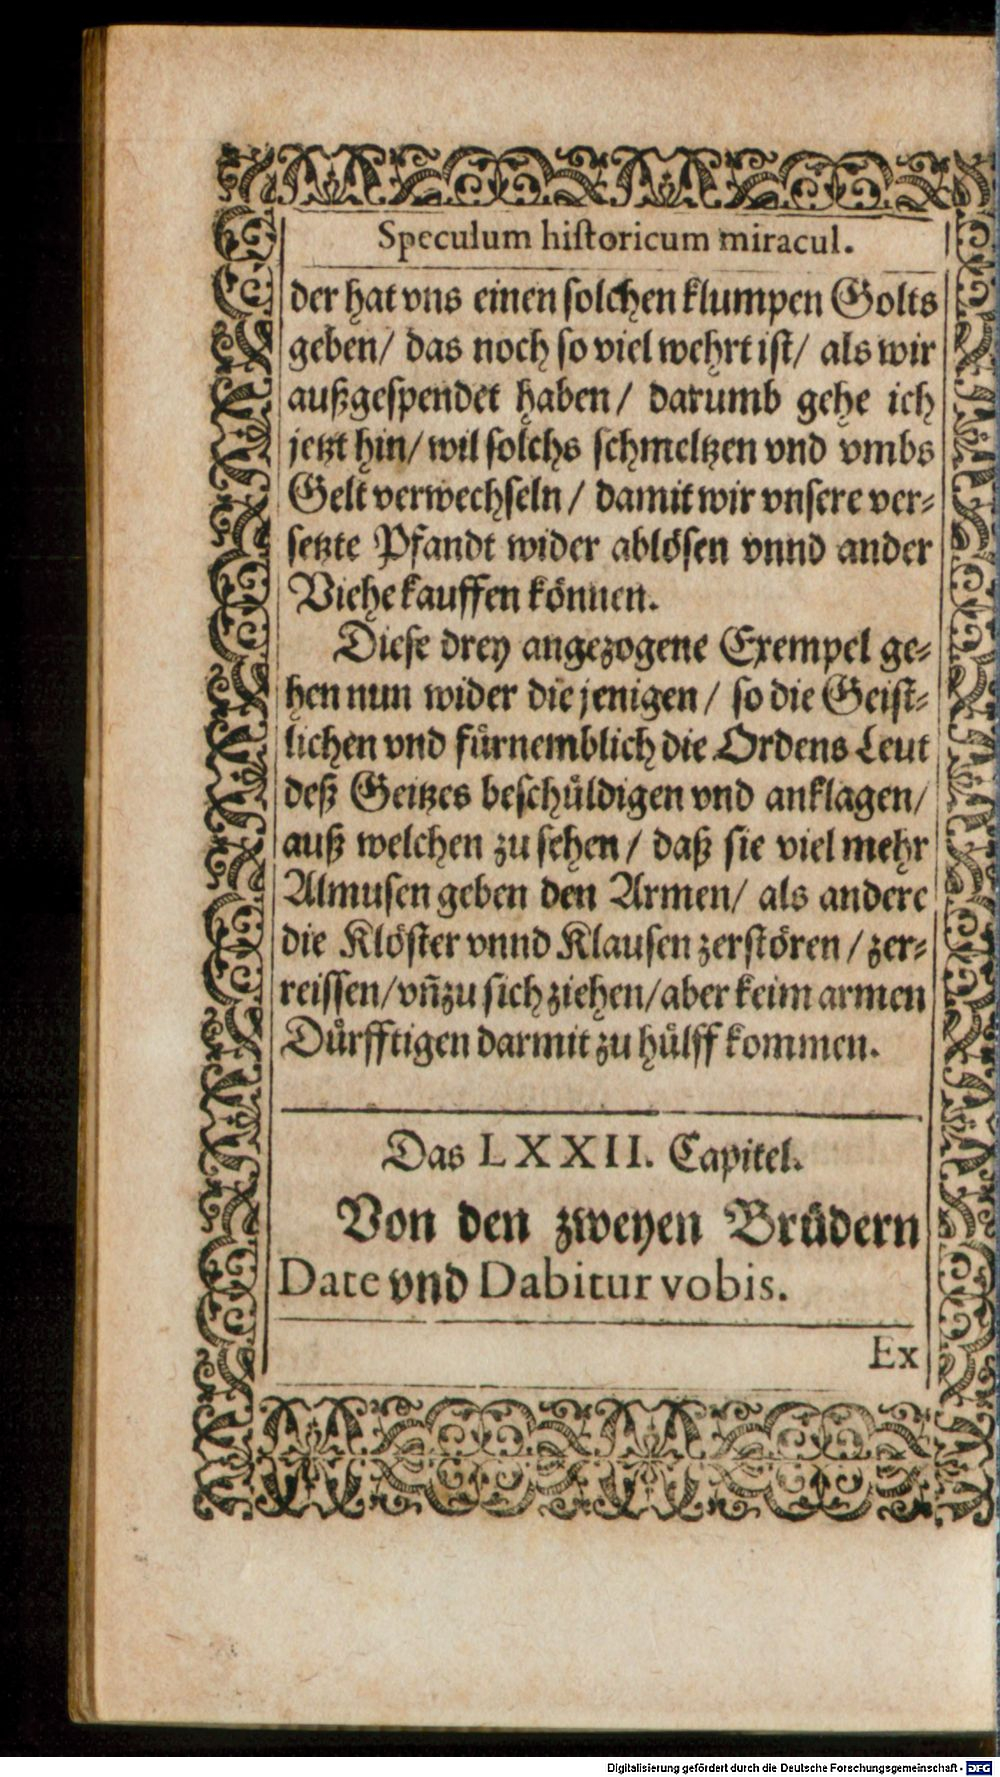 Speculum hiſtoricum miracul.
der hat vns einen ſolchen klumpen Golts
geben/ das noch ſo viel wehrt iſt/ als wir
außgeſpendet haben/ darumb gehe ich
jetzt hin/ wil ſolchs ſchmeltzen vnd vmbs
Gelt verwechſeln/ damit wir vnſere ver⸗
ſetzte Pfandt wider ablöſen vnnd ander
Viehe kauffen können.
Dieſe drey angezogene Exempel ge⸗
hen nun wider die jenigen/ ſo die Geiſt⸗
lichen vnd fuͤrnemblich die Ordens Leut
deß Geitzes beſchuͤldigen vnd anklagen/
auß welchen zu ſehen/ daß ſie viel mehr
Almuſen geben den Armen/ als andere
die Klöſter vnnd Klauſen zerſtören/ zer⸗
reiſſen/ vn̄ zu ſich ziehen/ aber keim armen
Duͤrfftigen darmit zu huͤlff kommen.
Das LXXII. Capitel.
Von den zweyen Bruͤdern
Date vnd Dabitur vobis.
Ex
Digitalisierung gefördert durch die Deutsche Forschungsgemeinschaft - DFG